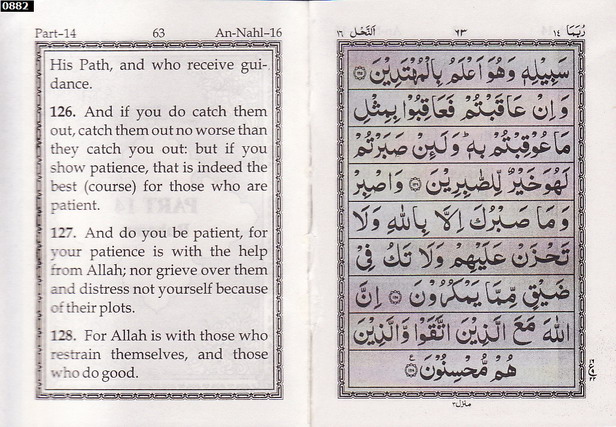 0882
Part–14 63 An-Nahl–16
His Path, and who receive gui-
dance.
126. And if you do catch them
out, catch them out no worse than
they catch you out: but if you
show patience, that is indeed the
best (course) for those who are
patient.
127. And do you be patient, for
your patience is with the help
from Allah; nor grieve over them
and distress not yourself because
of their plots.
128. For Allah is with those who
restrain themselves, and those
who do good.
رُبَمَا ١٤ ٦٣ اَلنَّحْل ١٦
سَبِيْلِهٖ وَهُوَ اَعْلَمُ بِالْمُهْتَدِيْنَ ۝١٢٥
وَاِنْ عَاقَبْتُمْ فَعَاقِبُوْا بِمِثْلِ
مَا عُوْقِبْتُمْ بِهٖ ؕ وَلَئِنْ صَبَرْتُمْ
لَهُوَ خَيْرٌ لِّلصّٰبِرِيْنَ ۝١٢٦ وَاصْبِرْ
وَمَا صَبْرُكَ اِلَّا بِاللّٰهِ وَلَا
تَحْزَنْ عَلَيْهِمْ وَلَا تَكُ فِيْ
ضَيْقٍ مِّمَّا يَمْكُرُوْنَ ۝١٢٧ اِنَّ
اللّٰهَ مَعَ الَّذِيْنَ اتَّقَوْا وَّالَّذِيْنَ
هُمْ مُّحْسِنُوْنَ ۝١٢٨
منزل٣